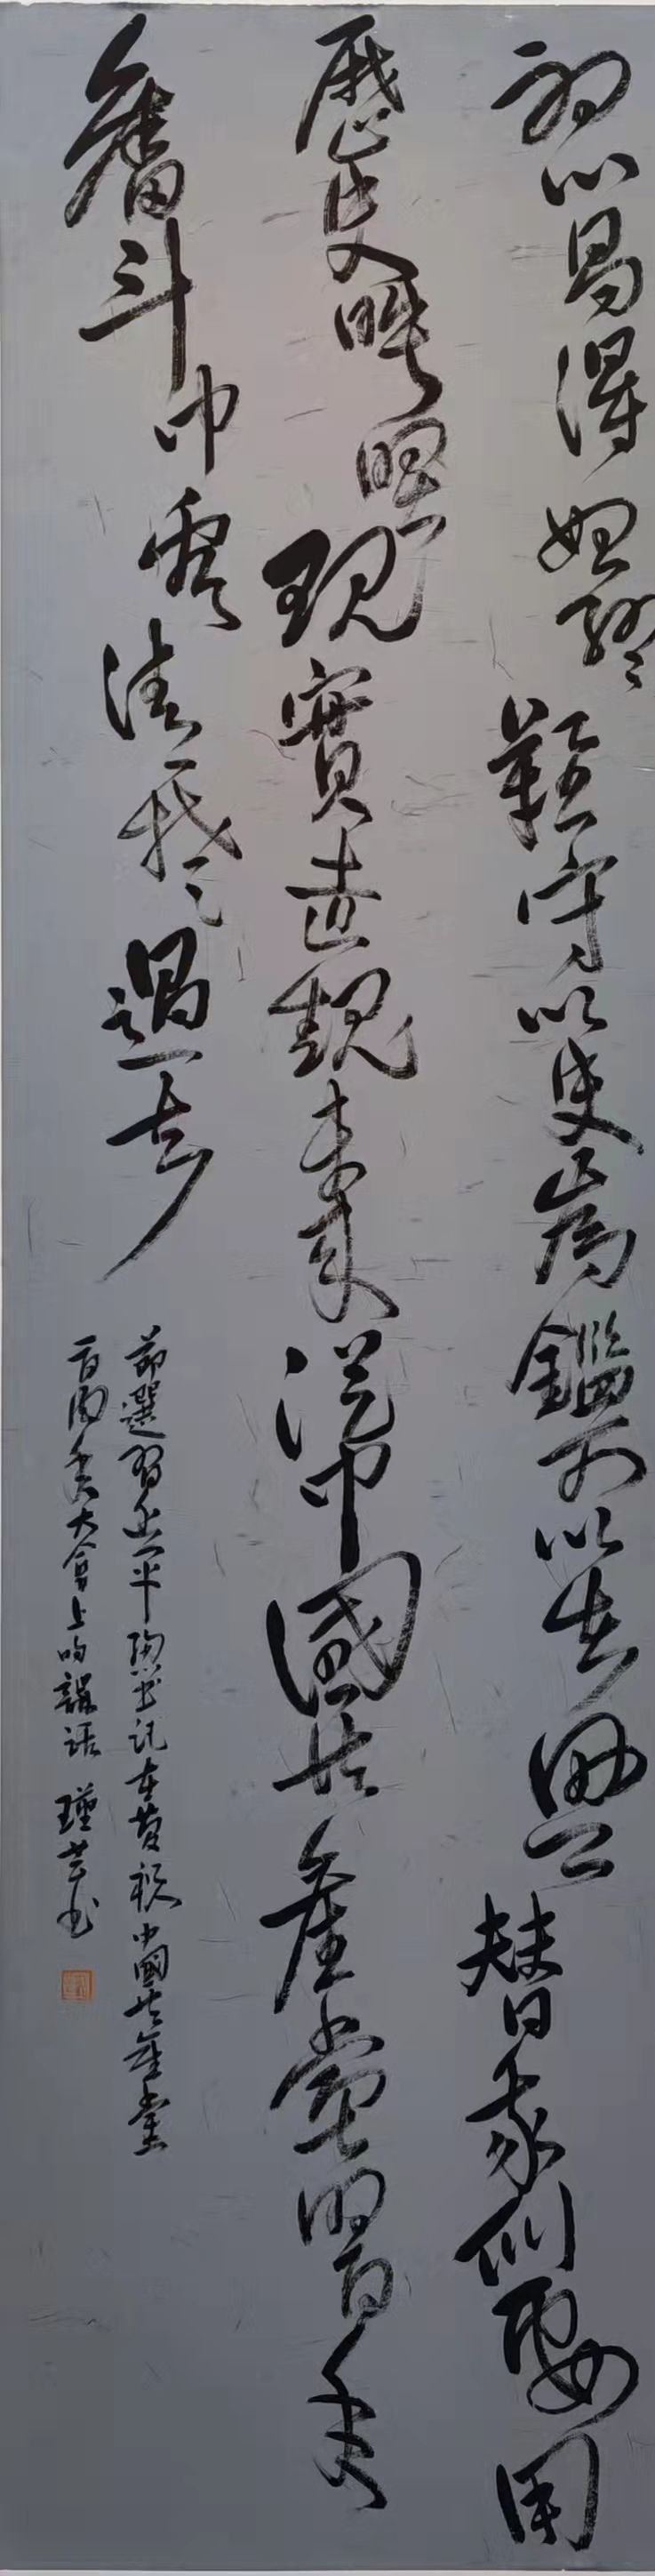 初心易得始終難守以史為鑑可以知興替我们要用
歷史映照現實遠觀未來從中國共產黨的百年
奮斗中看清我们過去
節選習近平總書記在慶祝中國共產黨
百周年大會上的講話 瑾芸书